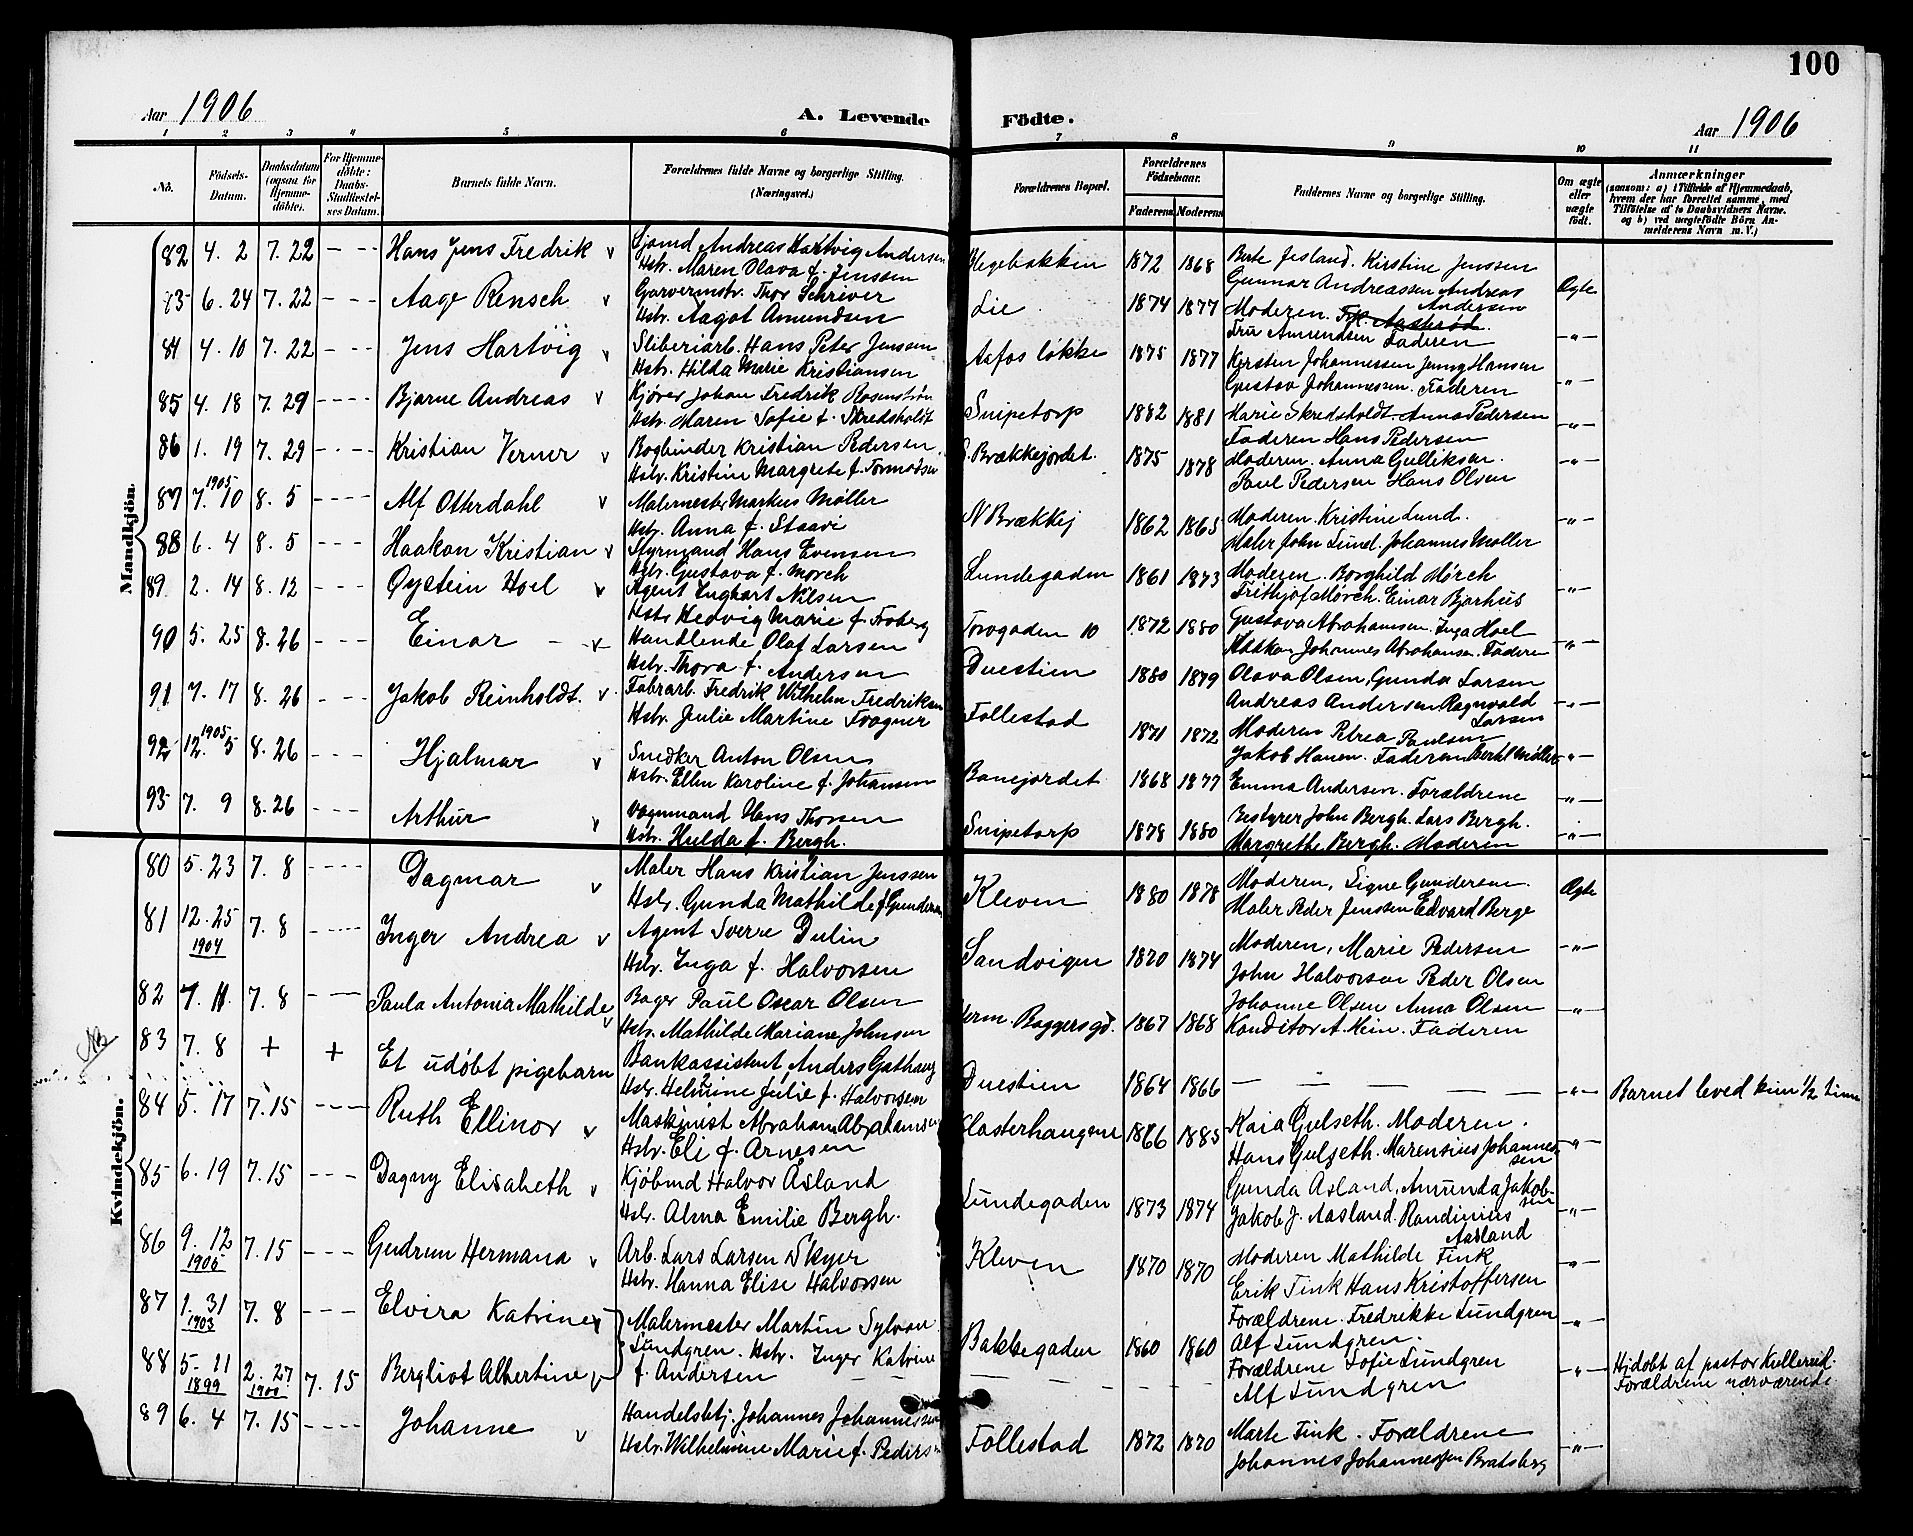 100
Aar 1906
A. Levende
Födte.
Aar 1906
1 2 3 4 5 6 7 8 9 10 11
No.
Födsels-Datum.
Daabsdatum (ogsaa for Hjemme-döbte).
For Hjemme-döbte: Daabs-Stadfæstel-ses Datum.
Barnets fulde Navn.
Forældrenes fulde Navne og borgerlige Stilling.
(Næringsvei.)
Forældrenes Bopæl.
Forældrenes Födselsaar.
Faderens Moderens
Faddernes Navne og borgerlige Stilling.
Om ægte eller uægte födt.
Anmærkninger
(saasom: a) i Tilfælde af Hjemmedaab, hvem der har forrettet samme, med Tilföielse af to Daabsvidners Navne. og b) ved uægtefödte Börn Anmelderens Navn m. V.)
Mandkjön.
82 4. 2 7. 22 - - - Hans Jens Fredrik v Sjømd Andreas Hartvig Andersen Blegebakken 1872 1868 Berte Jesland. Kirstine Jenssen Ægte
Hstr. Maren Olava f. Jenssen Gunnar Andreassen Andreas Andersen
83 6. 24 7. 22 - - - Aage Rensch v Garvermstr. Thor Schriver Lie 1874 1877 Moderen. Frk. Aasterød. -"-
Hstr. Aagot Amundsen Fru Amundsen Faderen
84 4. 10 7. 22 - - - Jens Hartvig v Sliberiarb. Hans Peter Jenssen Aafos løkke 1875 1877 Kersten Johannessen Jenny Hansen -"-
Hstr. Hilda Marie Kristiansen Gustav Johannessen. Faderen
85 4. 18 7. 29 - - - Bjarne Andreas v Kjører Johan Fredrik Rosenstrøm Snipetorp 1882 1881 Marie Skredsholdt. Anna Pedersen -"-
Hstr. Maren Sofie f. Skredsholdt Faderen Hans Pedersen
86 1. 19 7. 29 - - - Kristian Verner v Bogbinder Kristian Pedersen S. Brækkejordet. 1875 1878 Moderen. Anna Gulliksen. -"-
Hstr. Kristine Margrete f. Tormodsen Paul Pedersen Hans Olsen
87 7. 10 1905 8. 5 - - - Alf Otterdahl v Malermester Markus Møller N Brækkej 1862 1865 Moderen. Kristine Lund. -"-
Hstr. Anna f. Staavi Maler John Lund. Johannes Møller
88 6. 4 8. 5 - - - Haakon Kristian v Styrmand Hans Evensen Lundegaden 1861 1873 Moderen. Borghild Mørch -"-
Hstr. Gustava f. Mørch Frithjof Mørch. Einar Bjørhus
89 2. 14 8. 12 - - - Øystein Hoel v Agent Inghart Nilsen Torvgaden 10 1872 1880 Gustava Abrahamsen. Inga Hoel -"-
Hstr Hedvig Marie f. Froberg Haakon Johannes Abrahamsen. Faderen
90 5. 25 8. 26 - - - Einar - v Handlende Olaf Larsen Duestien 1880 1879 Olava Olsen, Gunda Larsen -"-
Hstr. Thora f. Andersen Andreas Andersen Ragnvald Larsen
91 7. 17 8. 26 - - - Jakob Reinholdt. v Fabrarb. Fredrik Wilhelm Fredriksen Follestad 1871 1872 Moderen Petrea Paulsen -"-
Hstr. Julie Martine Wagner Jakob Hansen. Faderen Bertel Møller
92 12. 5 1905 8. 26 - - - Hjalmar v Snedker Anton Olsen Banejordet 1868 1877 Emma Andersen. Forældrene -"-
Hstr. Ellen Karoline f. Johansen
93 7. 9 8. 26 - - - Arthur v Vognmand Hans Thorsen Snipetorp 1878 1880 Bestyrer John Bergh. Lars Bergh. -"-
Hstr. Hulda f. Bergh. Margrethe Bergh. Moderen
Kvindekjön.
80 5. 23 7. 8 - - - Dagmar v Maler Hans Kristian Jenssen Kleven 1880 1878 Moderen, Signe Gundersen. Ægte
Hstr. Gunda Mathilde f. Gundersen Maler Peder Jenssen Edvard Berge
81 12. 25 1904 7. 8 - - - Inger Andrea v Agent Sverre Dulin Sandvigen 1870 1874 Moderen, Marie Pedersen -"-
Hstr. Inga f. Halvorsen John Halvorsen Peder Olsen
82 7. 11. 7. 8 - - - Paula Antonia Mathilde v Bager Paul Oscar Olsen Herm Baggersgd. 1867 1868 Johanne Olsen Anna Olsen -"-
Hstr. Mathilde Mariane Johnsen Konditor A. Hein. Faderen
83 7. 8 + + Et udøbt pigebarn Bankassistent, Anders Gathaug Duestien 1864 1866 - - - - -"- Barnet leved kun 1/2 time
Hstr. Helmine Julie f. Halvorsen
84 5. 17 7. 15 - - - Ruth Ellinor v Maskinist Abraham Abrahamsen Klosterhaugene 1866 1885 Kaia Gulseth. Moderen. -"-
Hstr. Eli f. Arnesen Hans Gulseth. Marensius Johannessen
85 6. 19 7. 15 - - - Dagny Elisabeth v Kjøbmd Halvor Åsland Lundegaden 1873 1874 Gunda Åsland, Amunda Jakobsen -"-
Hstr. Alma Emilie Bergh. Jakob J. Aasland. Randinius Aasland
86 9. 12 1905 7. 15 - - - Gudrun Hermana v Arb. Lars Larsen Skyer Kleven 1870 1870 Moderen Mathilde Fink -"-
Hstr. Hanna Elise Halvorsen Erik Fink Hans Kristoffersen
87 1. 31 1903 7. 8 - - - Elvira Katrine v Malermester Martin Sylvan Lundgren. Hstr. Inger Katrine f. Andersen Bakkegaden 1860 1860 Forældrene. Fredrikke Lundgren -"-
Alf Lundgren.
88 5. 11 1899 2. 27 1900 7. 15 Bergliot Albertine v - - - - Forældrene Sofie Lundgren -"- Hjdøbt af pastor Kullerud. Forældrene nærværende.
Alf Lundgren
89 6. 4 7. 15 - - - Johanne v Handelsbtj. Johannes Johannessen Follestad 1872 1870 Marte Fink. Forældrene -"-
Hstr. Wilhelmine Marie f. Pedersen Johannes Johannessen Bratsberg